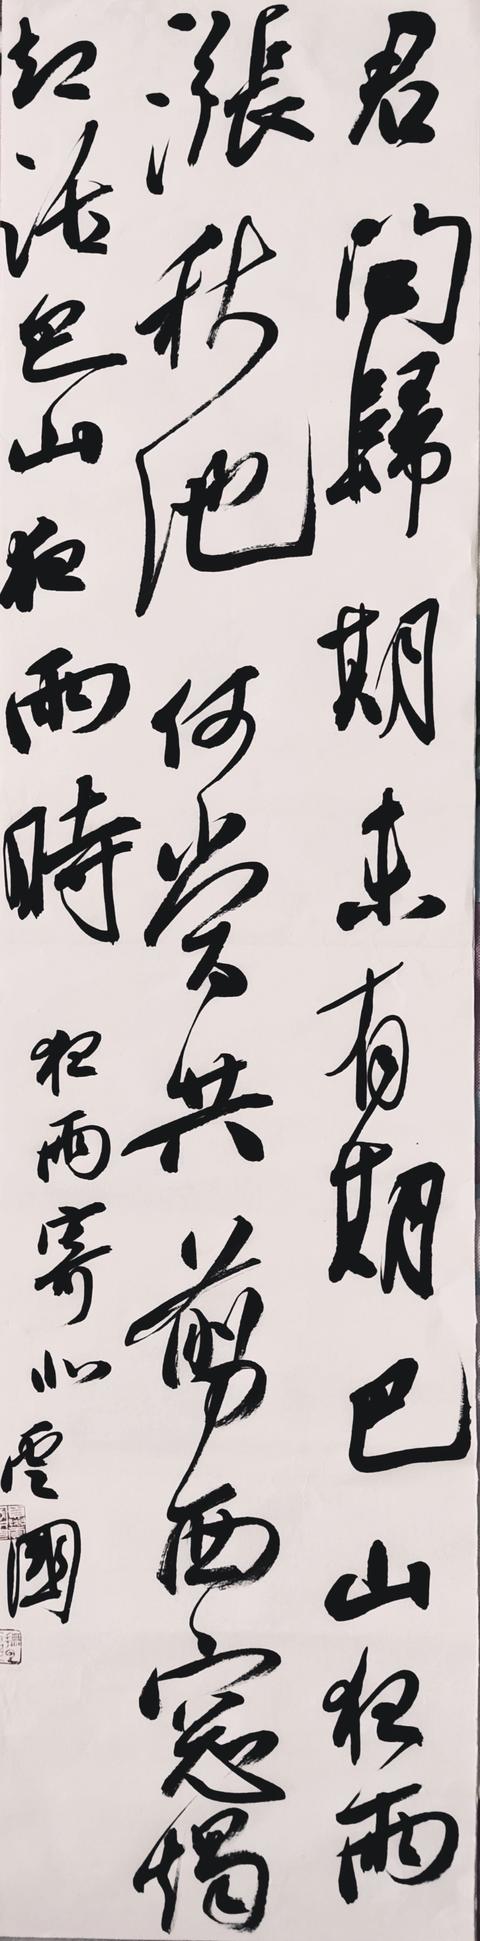 君问歸期未有期巴山夜雨
漲秋池何當共剪西窓燭
却话巴山夜雨時 夜雨寄北 雲國